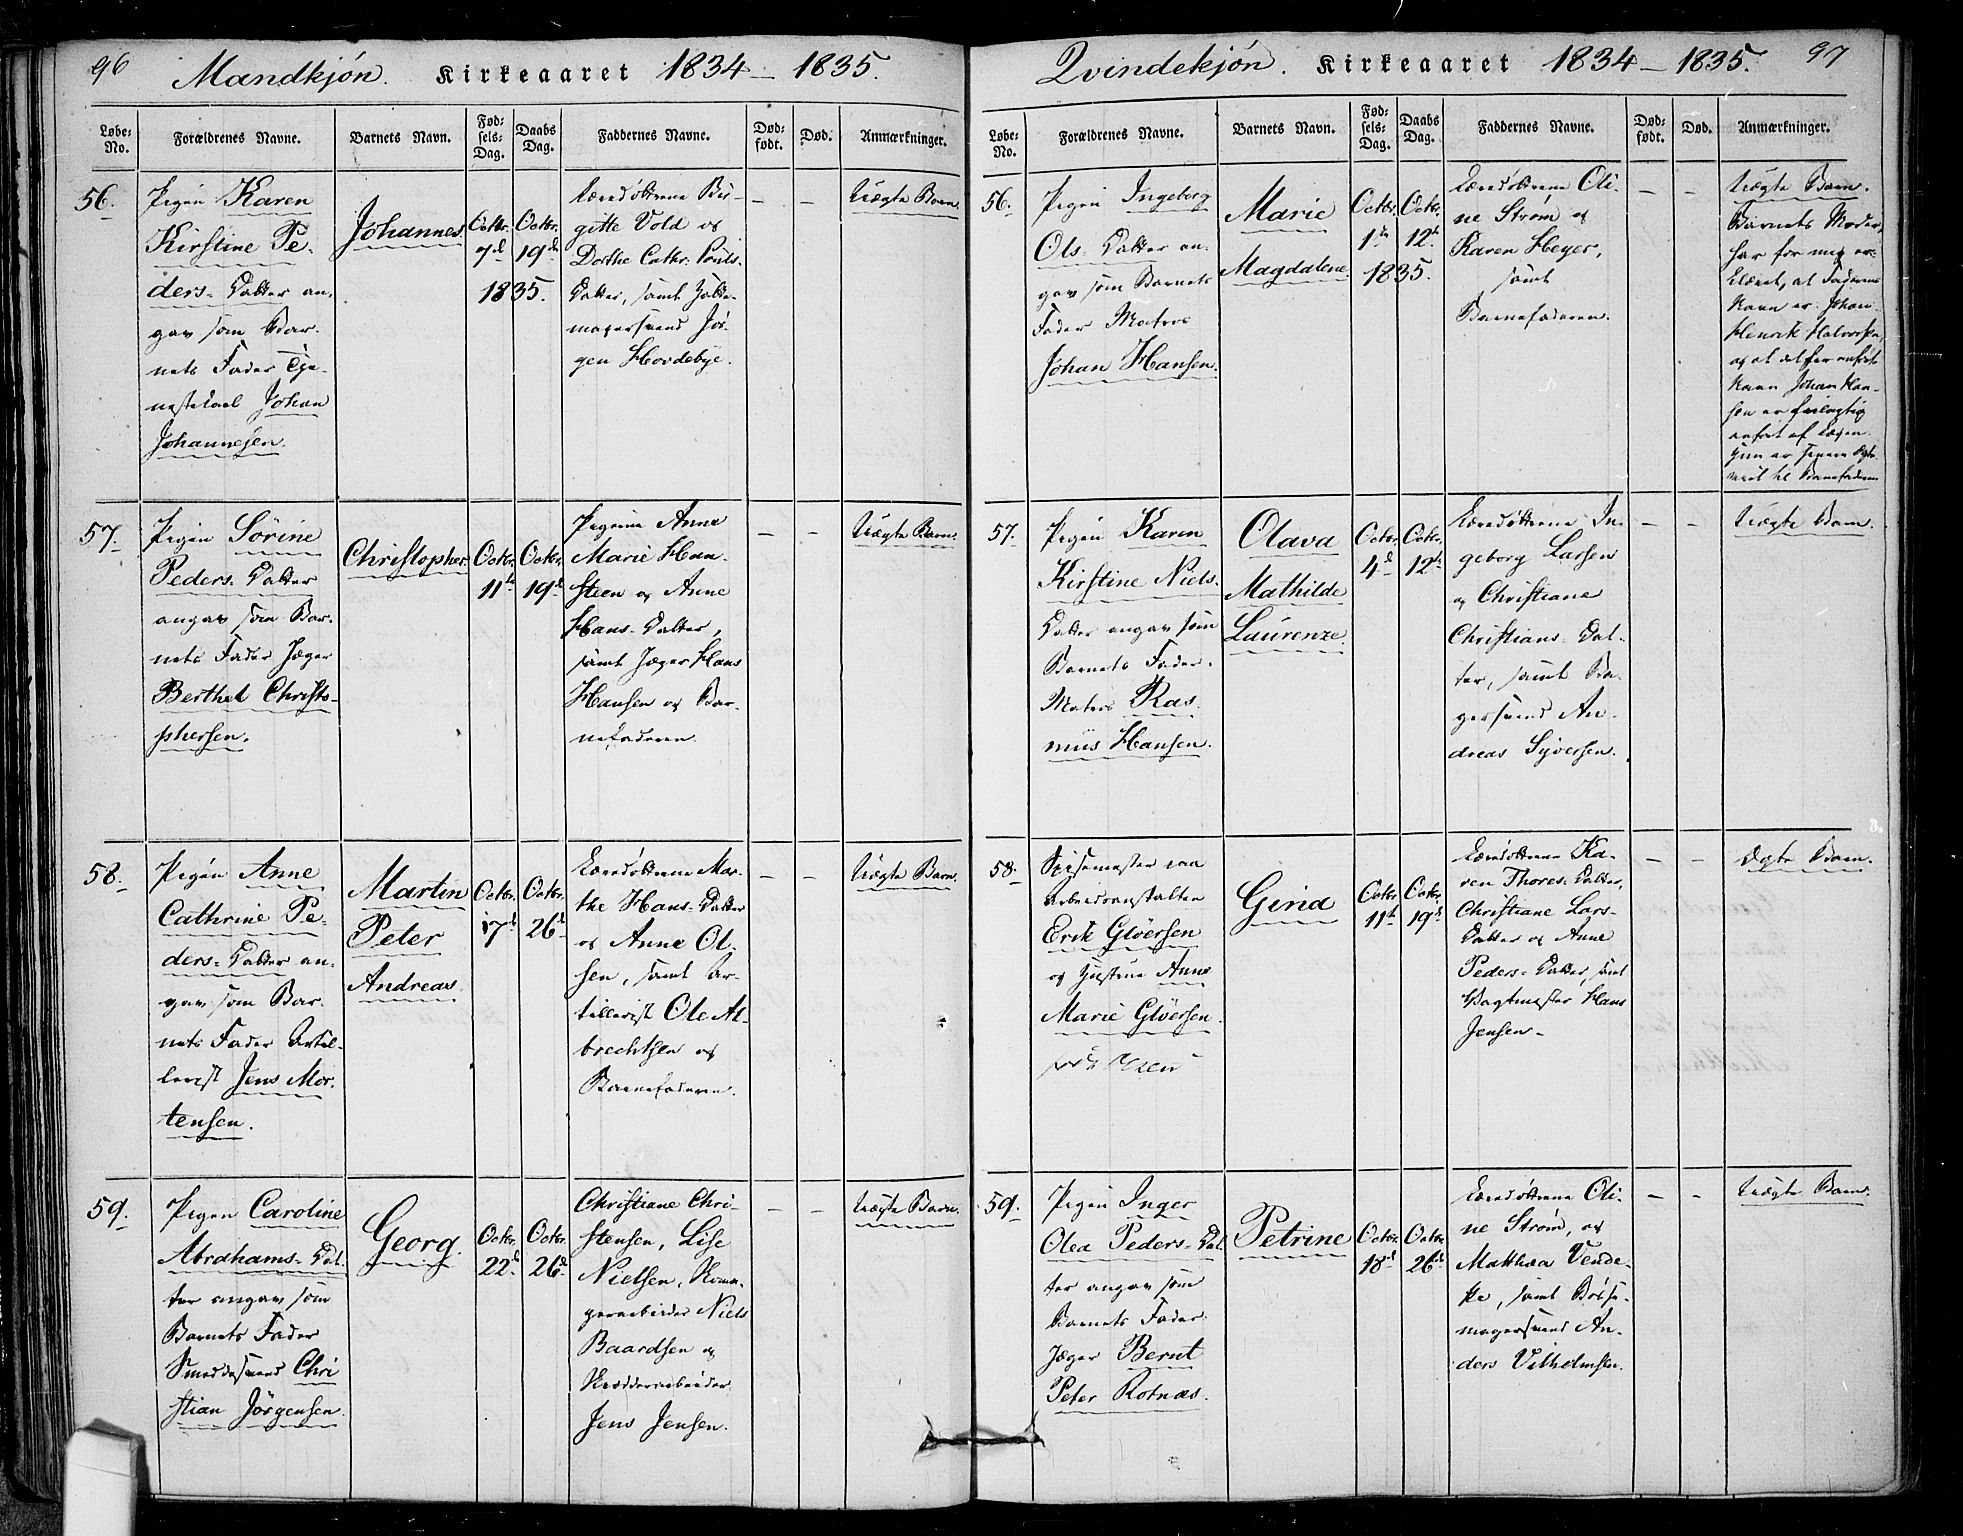 96
Mandkjøn. Kirkeaaret 1834 — 1835.
Løbe-No.
Forældrenes Navne.
Barnets Navn.
Fødsels-Dag.
Daabs Dag.
Faddernes Navne.
Dødfødt.
Død.
Anmærkninger.
56.
Pigen Karen
Kirstine Pe-
ders-Datter an-
gav som Bar-
nets Fader Tje-
nestekarl Johan
Johannesen.
Johannes
Octbr. 7d
Octbr. 19d
1835.
Læredøttrene Bir-
gitte Vold og
Dorthe Cathr: Pouls-
Datter, samt
magersvend Jör-
gen Hovdebye.
— —
Uægte Barn.
57.
Pigen Sörine
Peders-Datter
angav som Bar-
nets Fader Jæger
Berthel Christo-
phersen.
Christopher
Octbr. 11te
Octbr. 19d
Pigerne Anne
Marie Han-
steen og Anne
Hans-Datter,
samt Jæger Hans
Hansen og Bar-
nefaderen.
— —
Uægte Barn.
58.
Pigen Anne
Cathrine Pe-
ders-Datter an-
gav som Bar-
nets Fader Artil-
lerist Jens Mor-
tensen.
Martin
Peter
Andreas
Octbr. 17d
Octbr. 26d
Læredøttrene Mar-
the Hans-Datter
og Anne Ol-
sen, samt Ar-
tillerist Ole Al-
brechtsen og
Barnefaderen.
— —
Uægte Barn.
59.
Pigen Caroline
Abrahams-Dat-
ter angav som
Barnets Fader
Smeddesvend Chri
stian Jörgensen.
Georg.
Octbr. 22d
Octbr. 26d
Christiane Chri-
stensen, Lise
Nielsen, Skoma-
gerarbeider Niels
Baardsen og
Skrædderarbeider
Jens Jensen.
— —
Uægte Barn.
97
Qvindekjøn. Kirkeaaret 1834 — 1835.
Løbe-No.
Forældrenes Navne.
Barnets Navn.
Fødsels-Dag.
Daabs Dag.
Faddernes Navne.
Dødfødt.
Død.
Anmærkninger.
56.
Pigen Ingeborg
Ols-Datter an-
gav som Barnets
Fader Matros
Johan Hansen.
Marie
Magdalene.
Octbr. 1te
Octbr. 12te
1835.
Læredøttrene Oli-
ne Strøm og
Karen Heyer,
samt
Barnefaderen.
— —
Uægte Barn.
Barnets Moder
har for mig er-
klæret, at Faderens
Navn er Johan
Henrik Halvorsen,
og at det før anførte
Navn Johan Han-
sen er feilagtig
anført af
Hun er senere ægte-
viet til Barnefaderen
57.
Pigen Karen
Kirstine Niels-
Datter angav som
Barnets Fader
Matros Ras-
mus Hansen.
Olava
Mathilde
Laurenze
Octbr. 4d
Octbr. 12te
Læredøttrene In-
geborg Larsen
og Christiane
Christians-Dat-
ter, samt Ba-
gersvend An-
dreas Syversen.
— —
Uægte Barn.
58.
Spisemester ved
Arbeidsanstalten
Erik Gløersen
og Hustrue Anne
Marie Gløersen.
Gina
Octbr. 11te
Octbr. 19d
Læredøttrene Ka-
ren Thores-Datter,
Christiane Lars-
Datter og Anne
Peders-Datter, samt
Vagtmester Hans
Jensen.
— —
Ægte Barn.
59.
Pigen Inger
Olea Peders-Dat-
ter angav som
Barnets Fader
Jæger Bernt
Peter Rotnæs.
Petrine
Octbr. 18d
Octbr. 26d
Læredøttrene Oli-
ne Strøm, og
Matthea Vende-
ke, samt Bösse-
magersvend An-
ders Vilhelmsen.
— —
Uægte Barn.